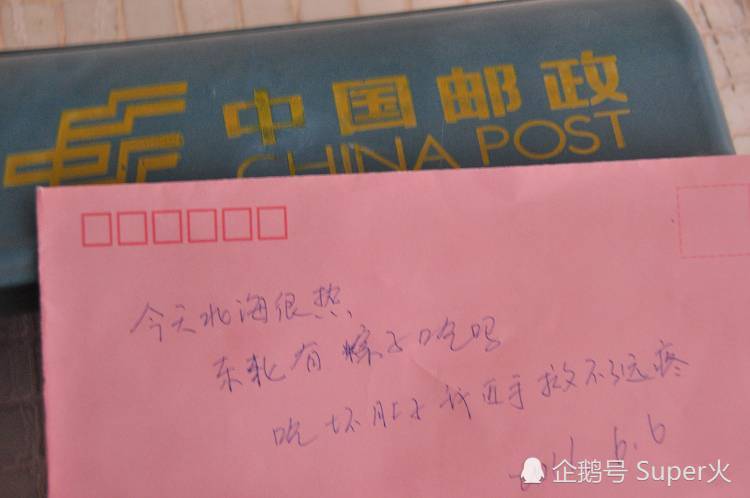 中国邮政
CHINA POST
今天北海很热
东北有粽子吃吗
吃坏肚子我近手救不了远疼
6.6
企鹅号 Super火